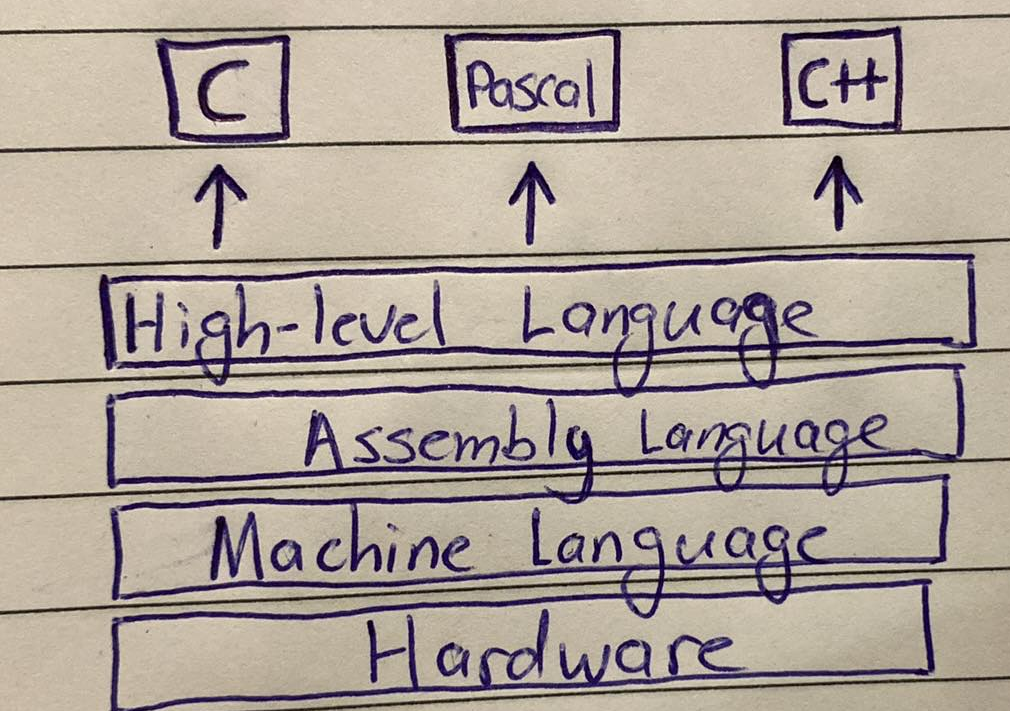 C Pascal C++
High-level Language
Assembly Language
Machine Language
Hardware